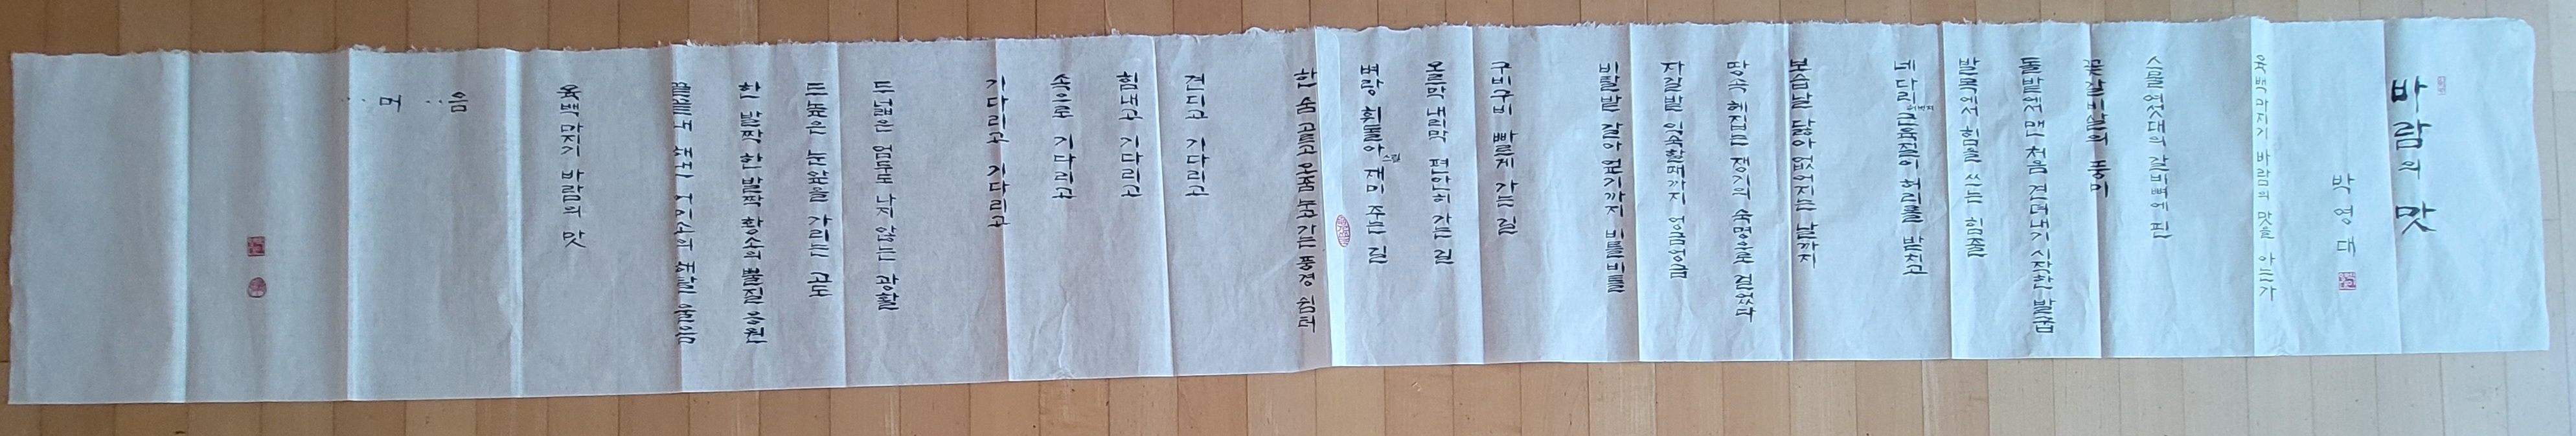 바람의 맛
박영대
육백마지기 바람의 맛을 아는가
스물여섯대의 갈비뼈에 핀
꽃갈비살의 풍미
돌밭에서 맨 처음 견뎌내기 시작한 발굽
발목에서 힘을 쓰는 힘줄
네 다리 근육질이 허리를 받치고
보습날 닳아 없어지는 날까지
땅속 헤집는 쟁기의 숙명으로 걸었다
자갈밭 익숙할때까지 엉금엉금
비탈밭 갈아 엎기까지 비틀비틀
구비구비 빠르게 가는 길
오르막 내리막 편안히 가는 길
벼랑 휘돌아 스릴 재미 주는 길
한 숨 고르고 오줌 누고 가는 풍경 쉼터
견디고 기다리고
힘내고 기다리고
속으로 기다리고
기다리고 기다리고
드넓은 엄두도 나지 않는 광활
드높은 눈앞을 가리는 고도
한 발짝 한 발짝 황소의 뿔질 응원
어미소의 울음
육백마지기 바람의 맛
음
머